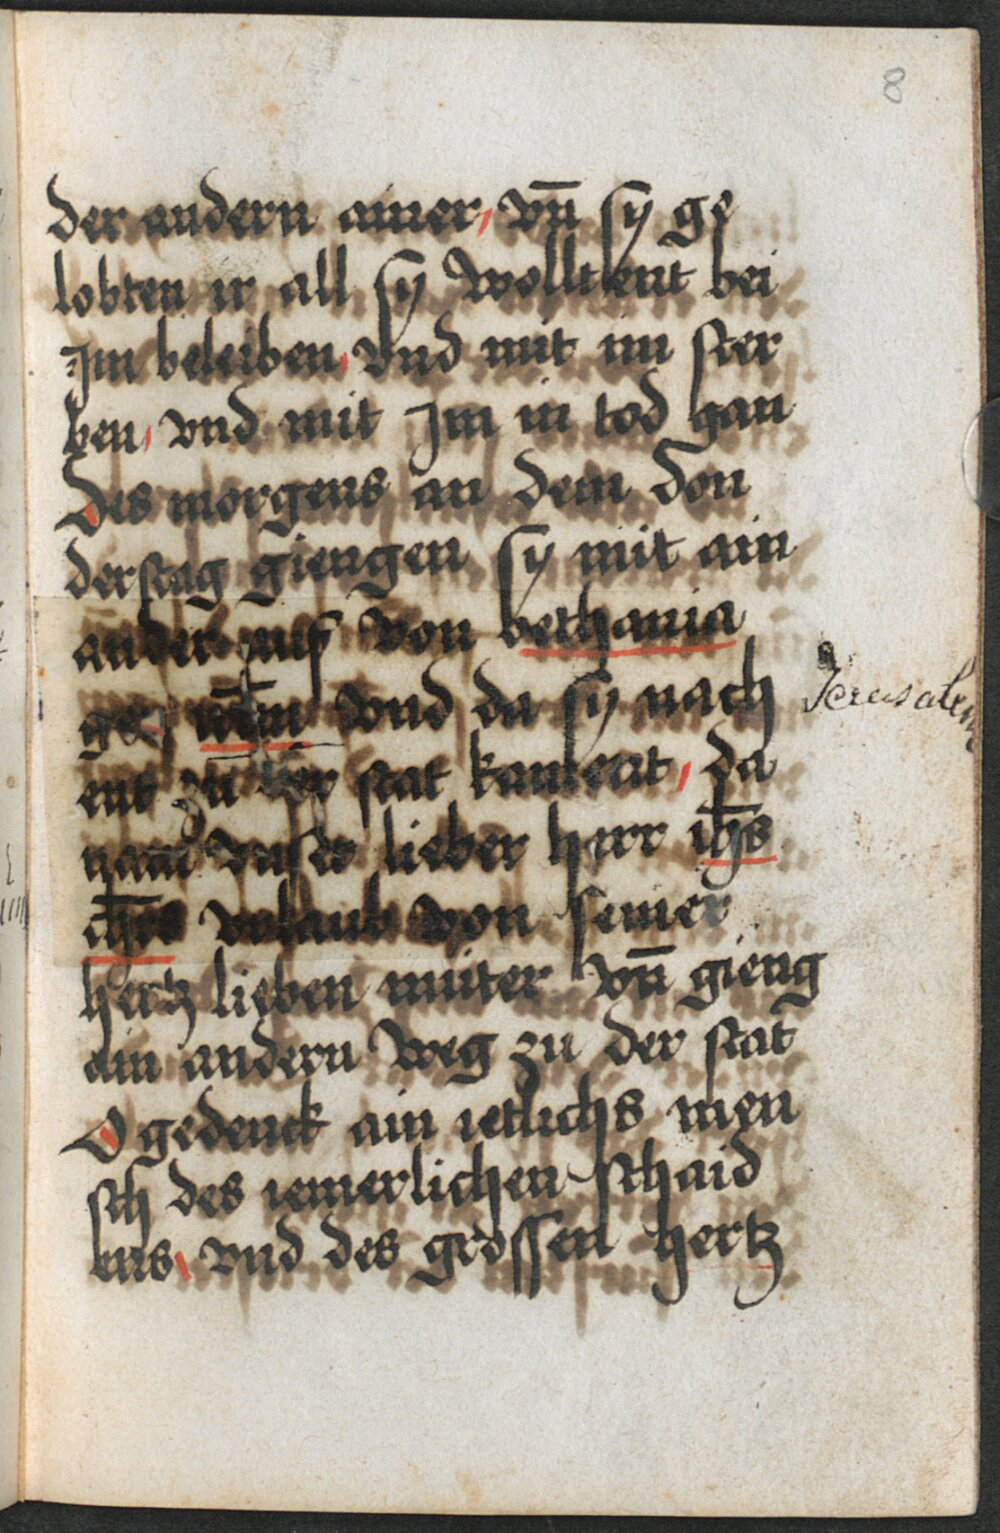 8
der andern ainer, vn̄ sÿ ge
lobten ir all sÿ wolltent bei
Im beleiben, vnd mit im ster
ben, vnd mit Im in tod gan
Des morgens an dem don
derstag giengen sÿ mit ain
ander auß von bethania
vnd da sÿ nach
Jerusalem
ent zu der stat kament, da
nam vnser lieber herr ih̄s
vrlaub von seiner
hertz lieben müter vn̄ gieng
ain andern weg zu der stat
O gedenck ain ietlichs men
sch des iemerlichen schaid
ens, vnd des grossen hertz